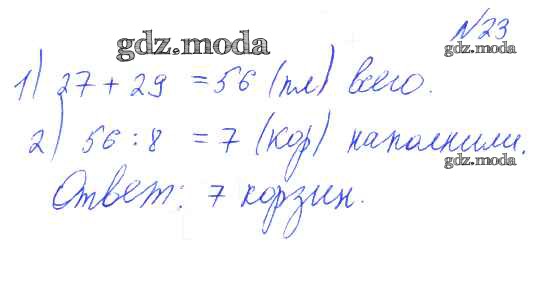 №23
gdz.moda
gdz.moda
1) 27 + 29 = 56 (пл) всего.
2) 56 : 8 = 7 (кор) наполнили.
gdz.moda
Ответ: 7 корзин.